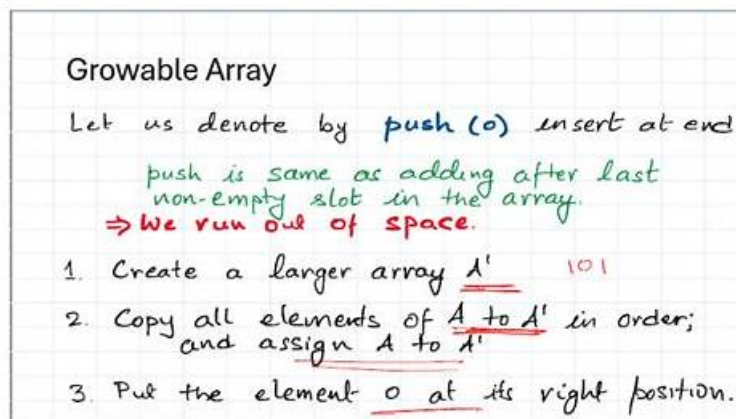 Growable Array
Let us denote by push (o) insert at end
push is same as adding after last
non-empty slot in the array.
⇒ We run out of space.
1. Create a larger array A' 101
2. Copy all elements of A to A' in order;
and assign A to A'
3. Put the element o at its right position.